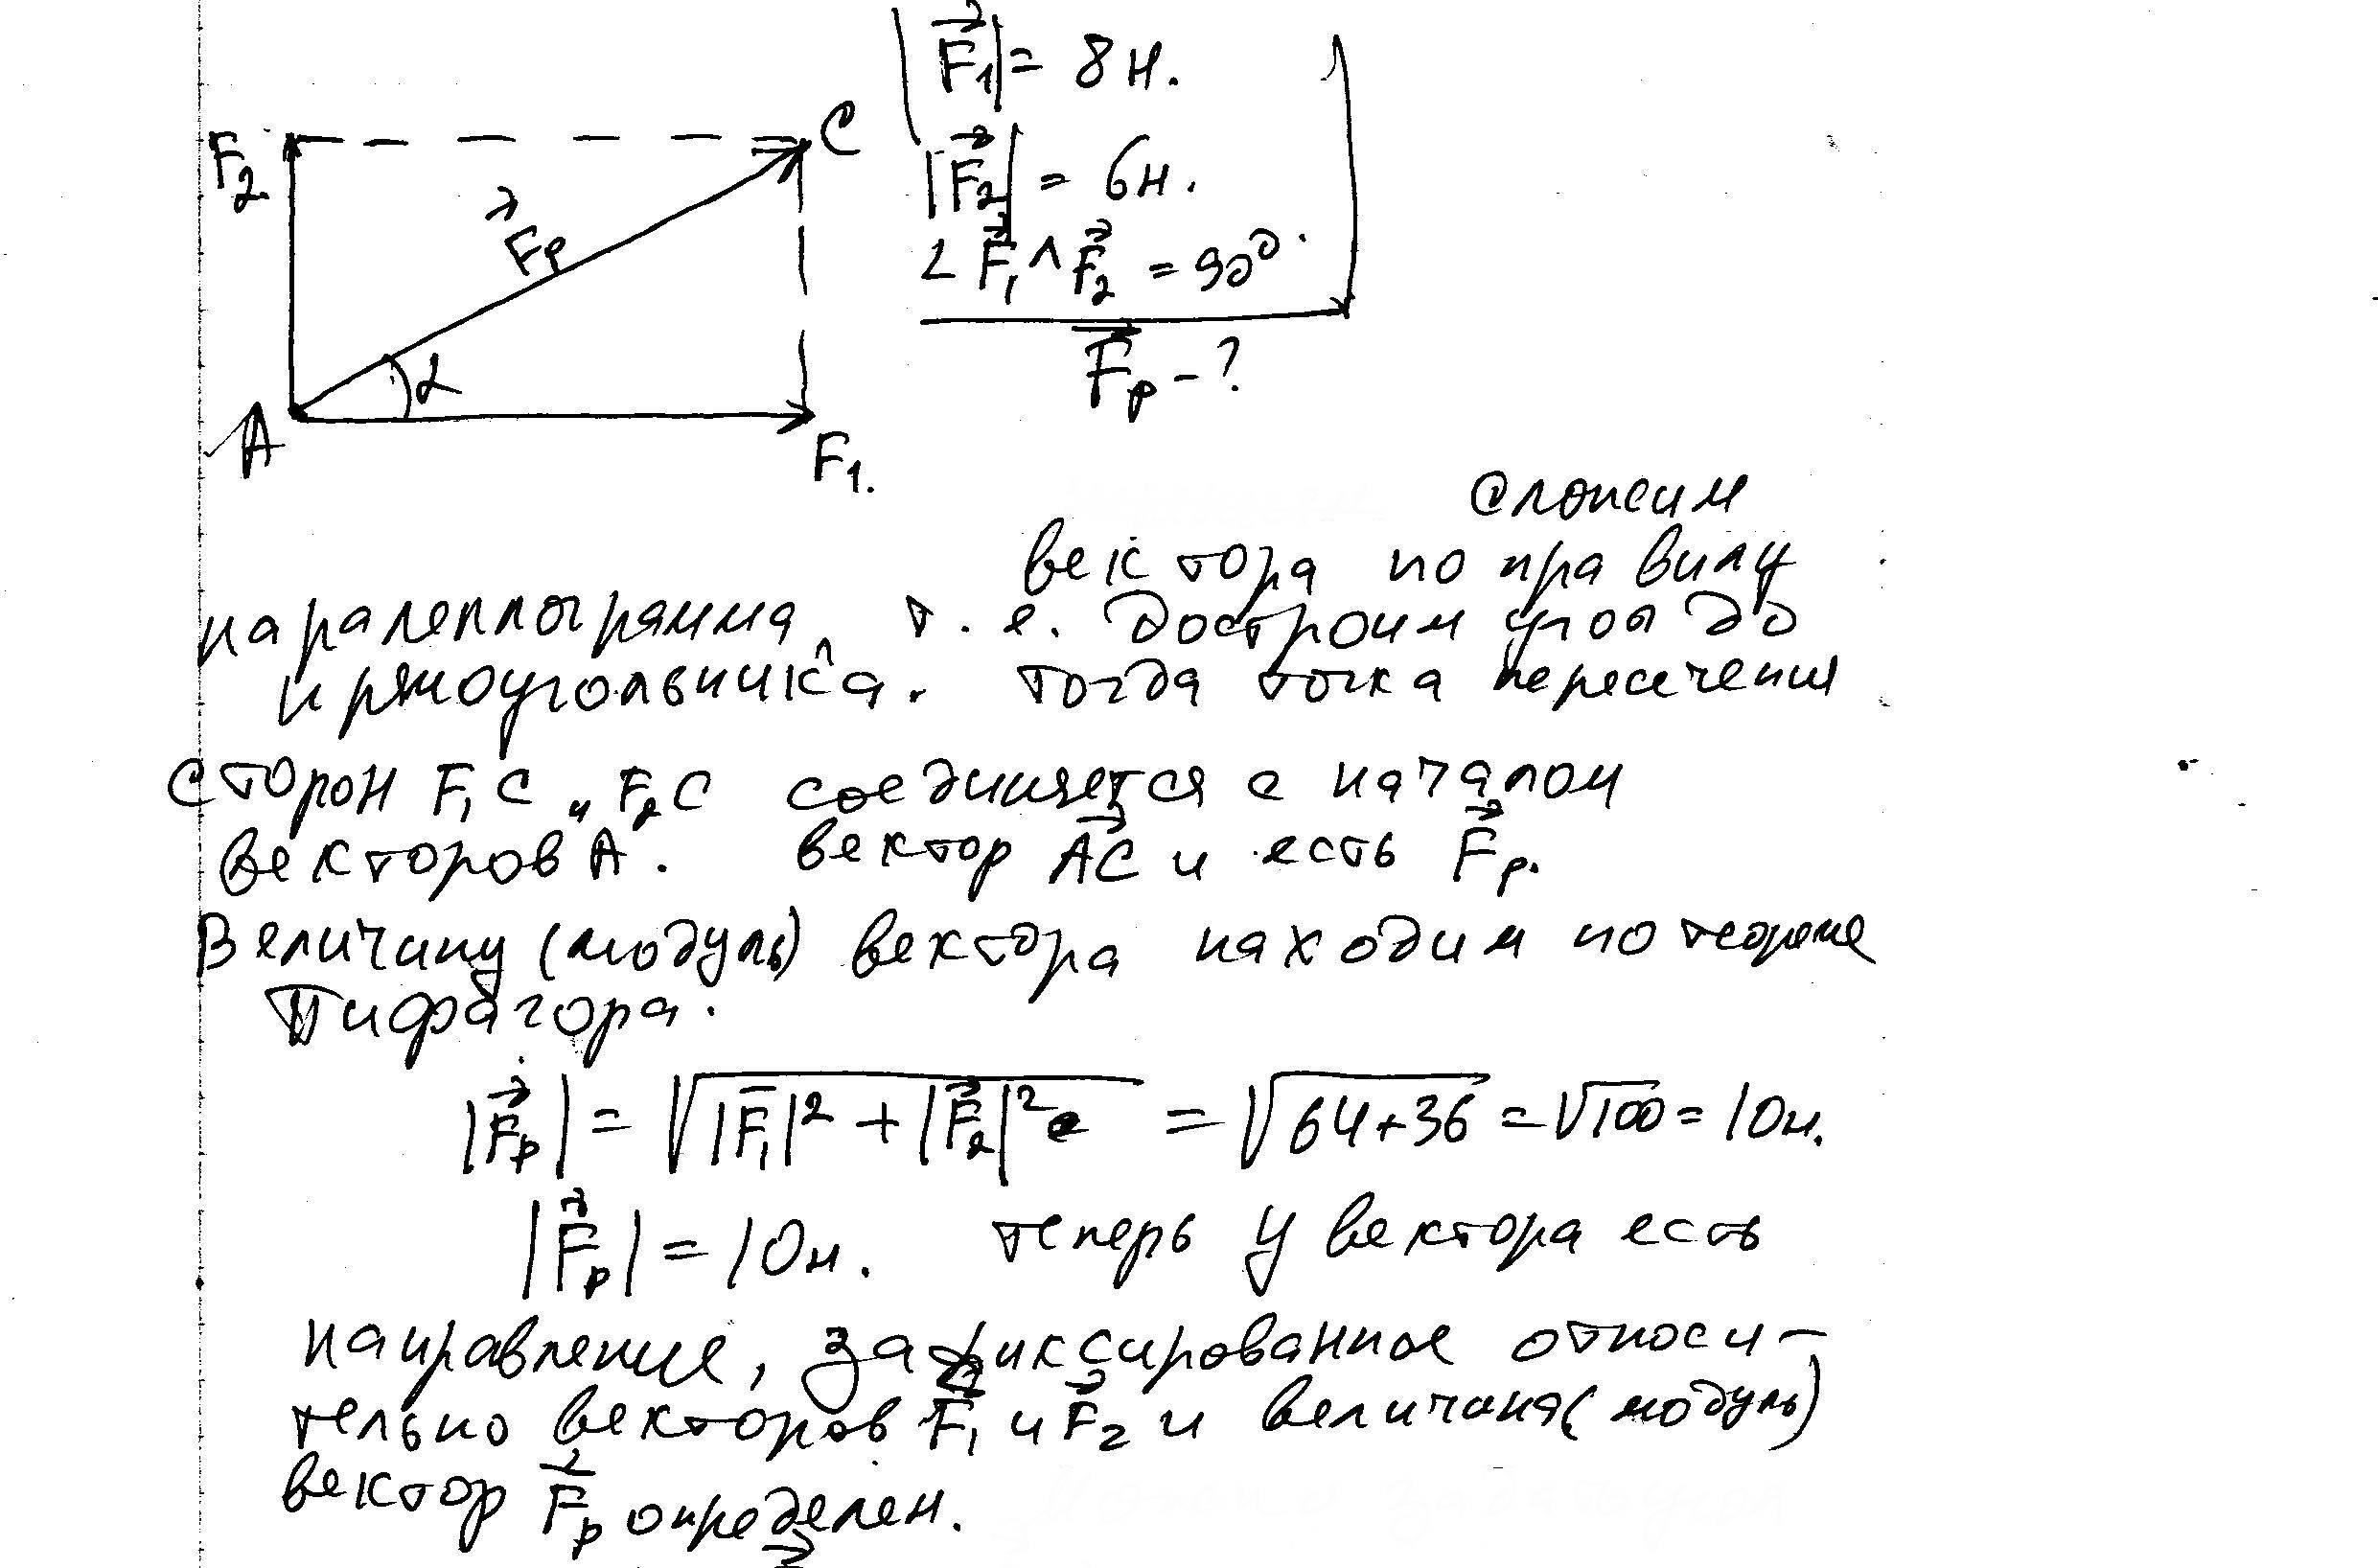 |F⃗1| = 8 н.
|F⃗2| = 6 н.
∠ F⃗1 ^ F⃗2 = 90°.
F⃗р - ?
F2
F⃗р
C
α
A
F1.
Сложим
вектора по правилу
паралеллограмма, т. е. достроим угол до
прямоугольника. Тогда точка пересечения
сторон F1C и F2C соединяется с началом
векторов A. Вектор A⃗C и есть F⃗р.
Величину (модуль) вектора находим по теореме
Пифагора.
|F⃗р| = √|F̄1|² + |F⃗2|² = √64+36 = √100 = 10н.
|F⃗р| = 10н. теперь у вектора есть
направление, зафиксированное относи-
тельно векторов F⃗1 и F⃗2 и величина (модуль)
вектор F⃗р определен.